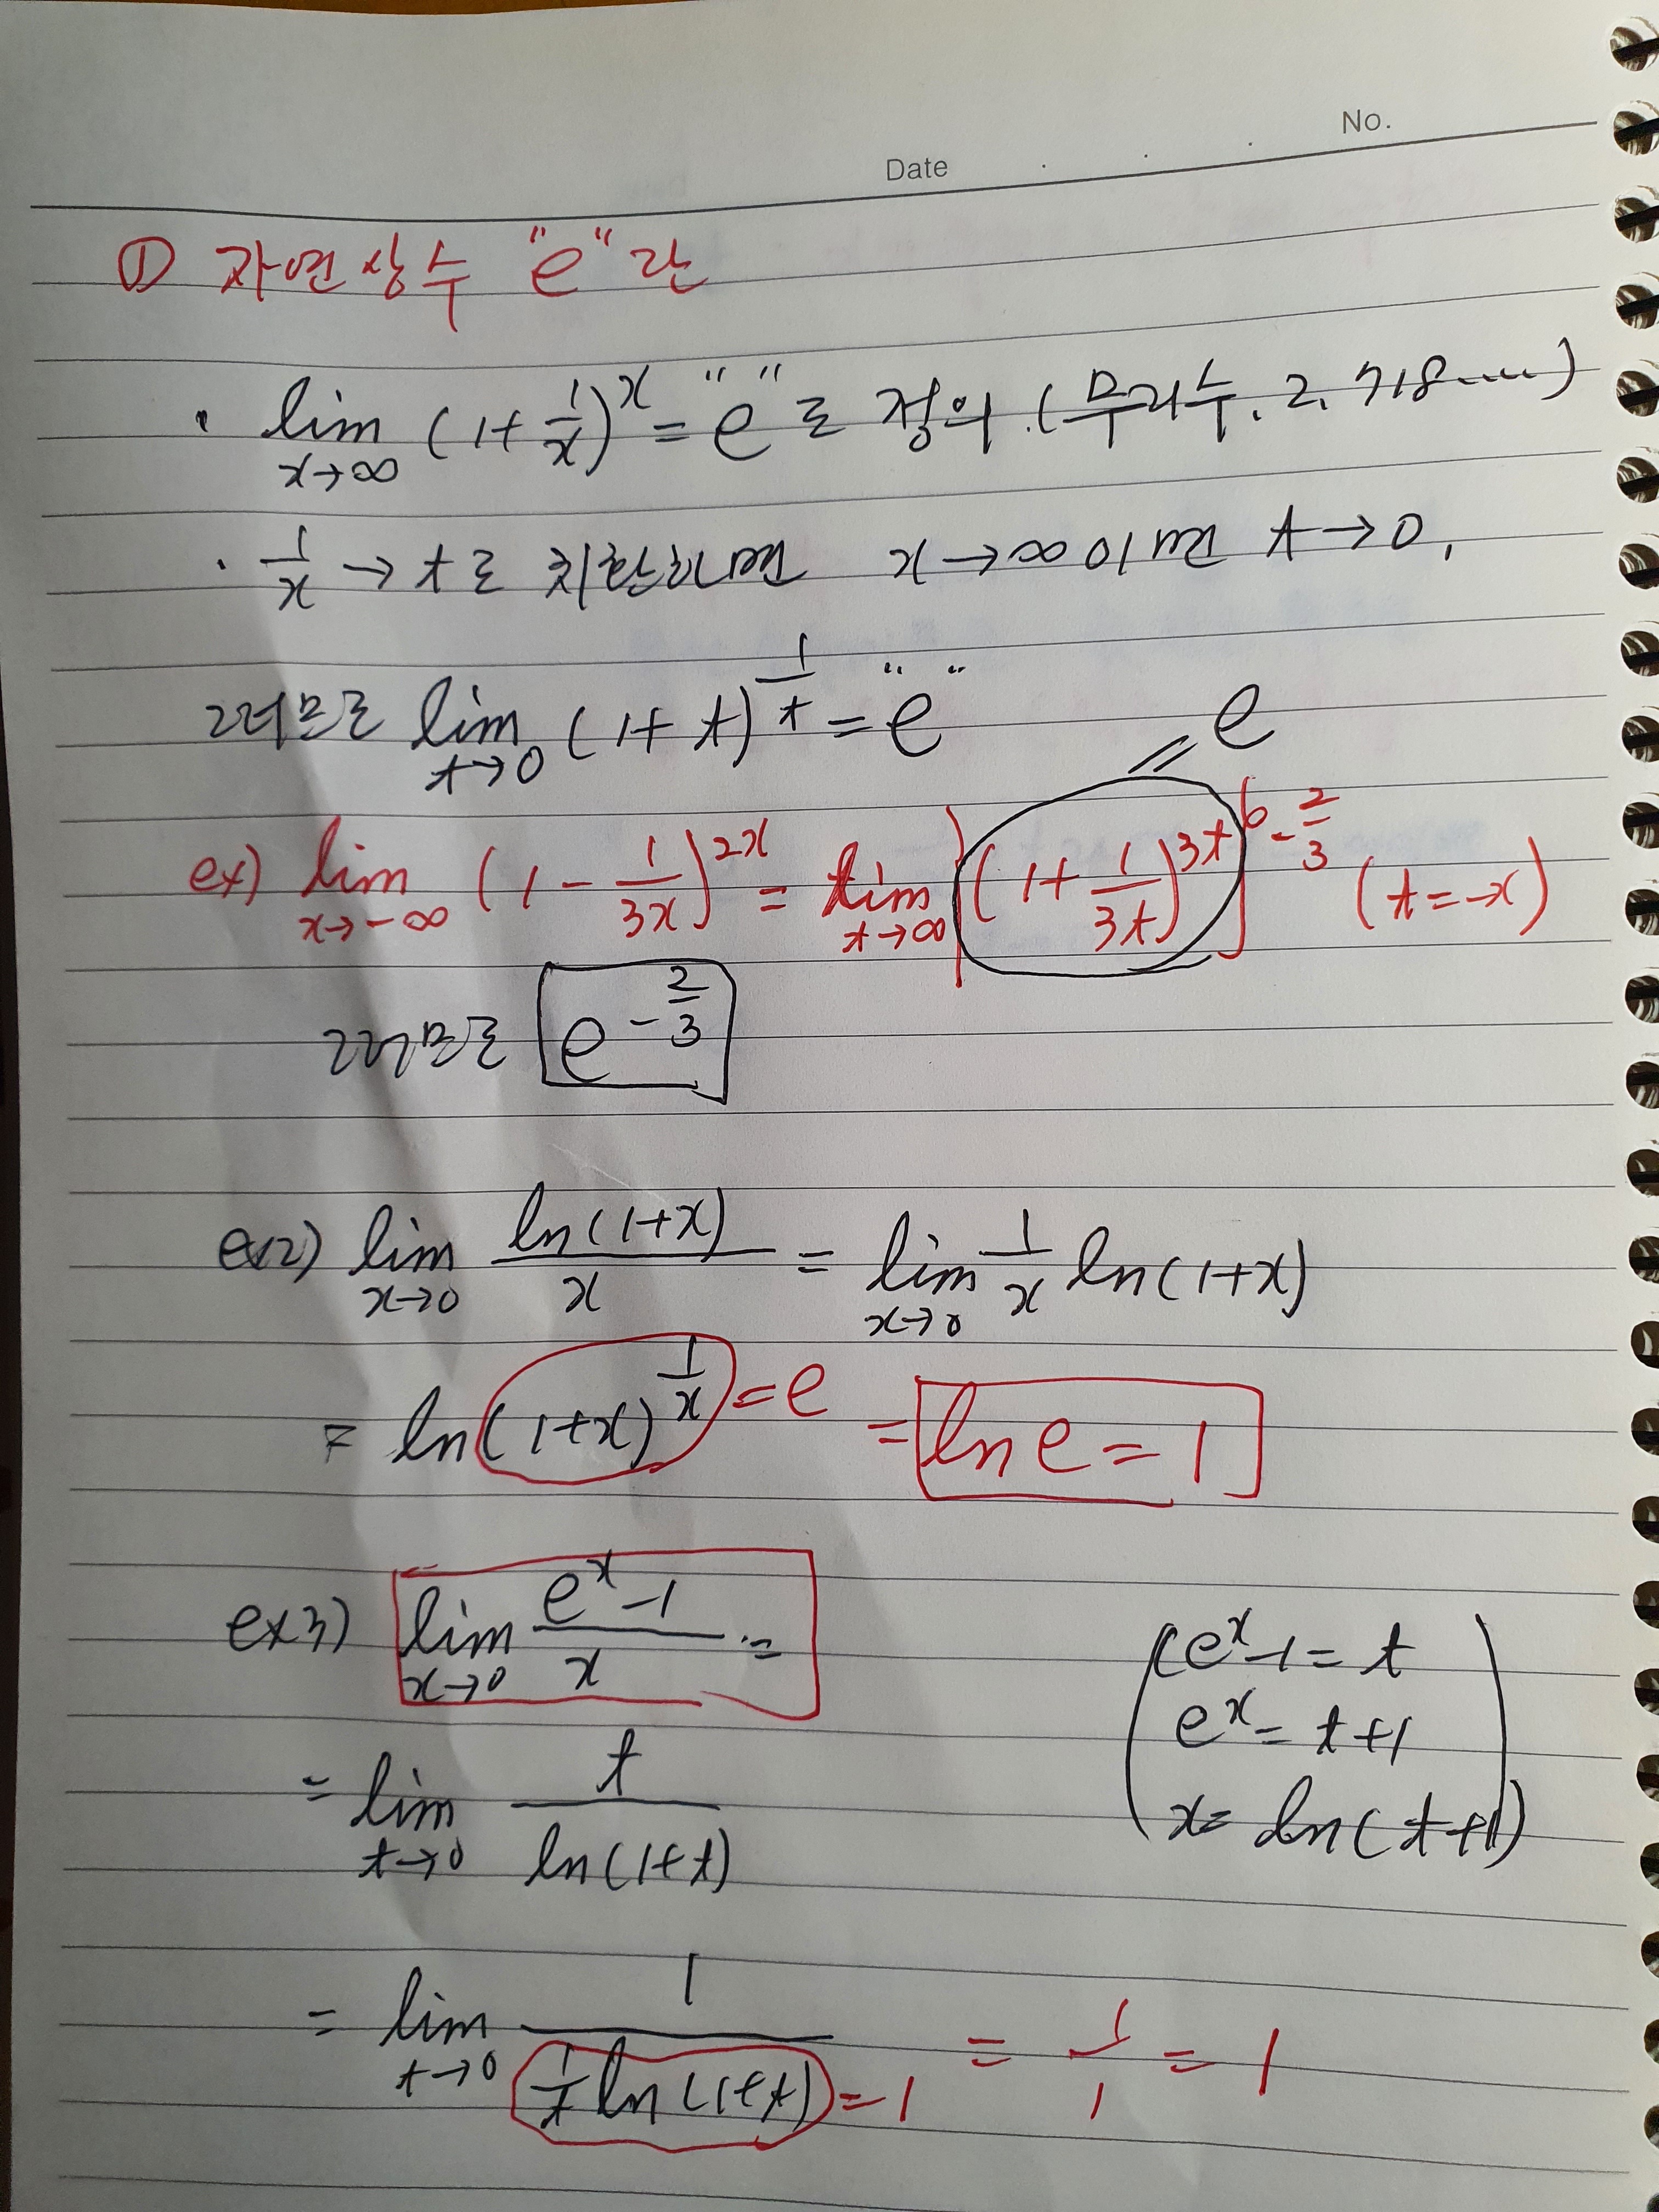 No.
Date
① 자연상수 "e"란
· lim x→∞ (1+1/x)^x = "e"로 정의. (무리수. 2.718.....)
· 1/x → t로 치환하면 x→∞이면 t→0,
그러므로 lim t→0 (1+t)^(1/t) = "e"
= e
ex) lim x→-∞ (1 - 1/3x)^2x = lim t→∞ [(1+1/3t)^3t]^-2/3 (t=-x)
그러므로 e^-2/3
ex2) lim x→0 ln(1+x)/x = lim x→0 1/x ln(1+x)
= ln(1+x)^(1/x) = e = ln e = 1
ex3) lim x→0 (e^x-1)/x =
(e^x-1=t
e^x = t+1
x= ln(t+1)
= lim t→0 t/ln(1+t)
= lim t→0 1/(1/t ln(1+t)) =1 = 1/1 = 1